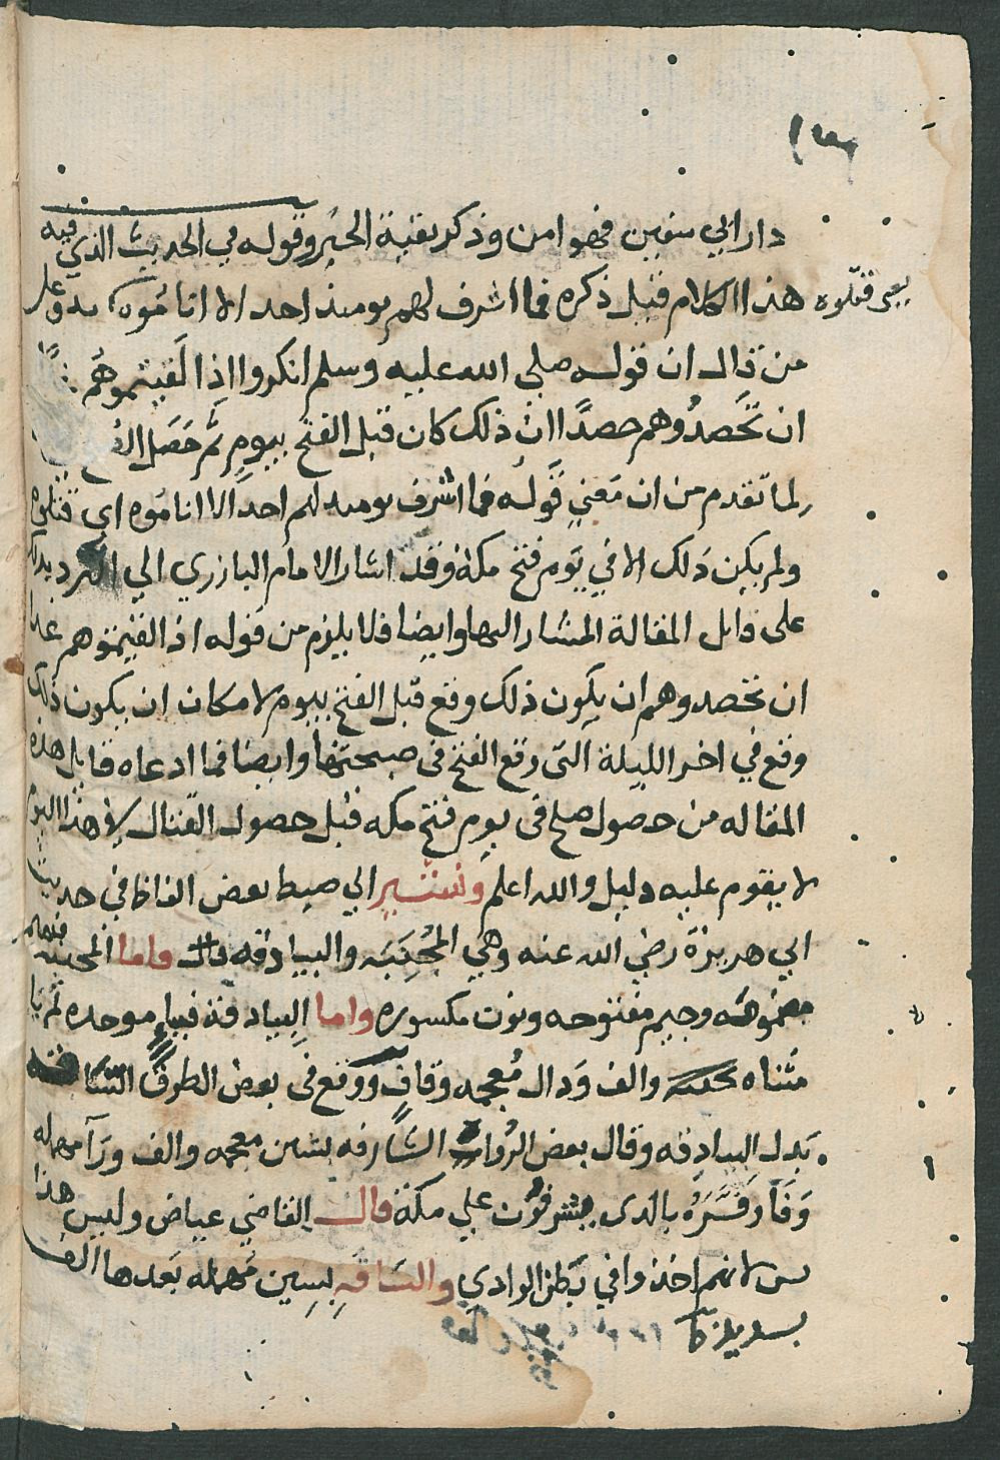 دار ابي سفين فهو امن وذكر بقية الخبر وقوله في الحديث الذي فيه
هذا الكلام قبل ذكره فما اشرف لهم يومئذ احد الا اناموه يدل على
يعني قتلوه
من قال ان قوله صلي الله عليه وسلم انكروا اذا لقيتموهم
ان تحصدوهم حصدًا ان ذلك كان قبل الفتح بيوم ثم حصل
لما تقدم من ان معني قوله فما اشرف يومئذ لهم احدا الا اناموه اي قتلوه
ولم يكن ذلك الا في يوم فتح مكة وقد اشار الامام المازري الي الرد بذلك
على قايل المقالة المشار اليها وايضا فلا يلزم من قوله اذا لقيتموهم غدا
ان تحصدوهم ان يكون ذلك وقع قبل الفتح بيوم لامكان ان يكون ذلك
وقع في اخر الليلة التي وقع الفتح في صبيحتها وايضا فما ادعاه قايل هذه
المقاله من حصول صلح في يوم فتح مكه قبل حصول القتال في هذا اليوم
لا يقوم عليه دليل والله اعلم ونشير الي ضبط بعض الفاظ في حديث
ابي هريرة رضي الله عنه وهي المجنبه والبياذقه قال واما المجنبه فبميم
مضمومه وجيم مفتوحه ونون مكسوره واما البياذقة فبباء موحده ثم يا
مثناه تحتيه والف وذال معجمه وقاف ووقع في بعض الطرق الساقه
بدل البياذقه وقال بعض الرواة الشارفه بشين معجمه والف ورآ مهمله
وفآ وفسره بالذى يشرفون علي مكة قال القاضي عياض وليس هذا
لانهم اخذوا في بطن الوادي والساقه بسين مهمله بعدها الف